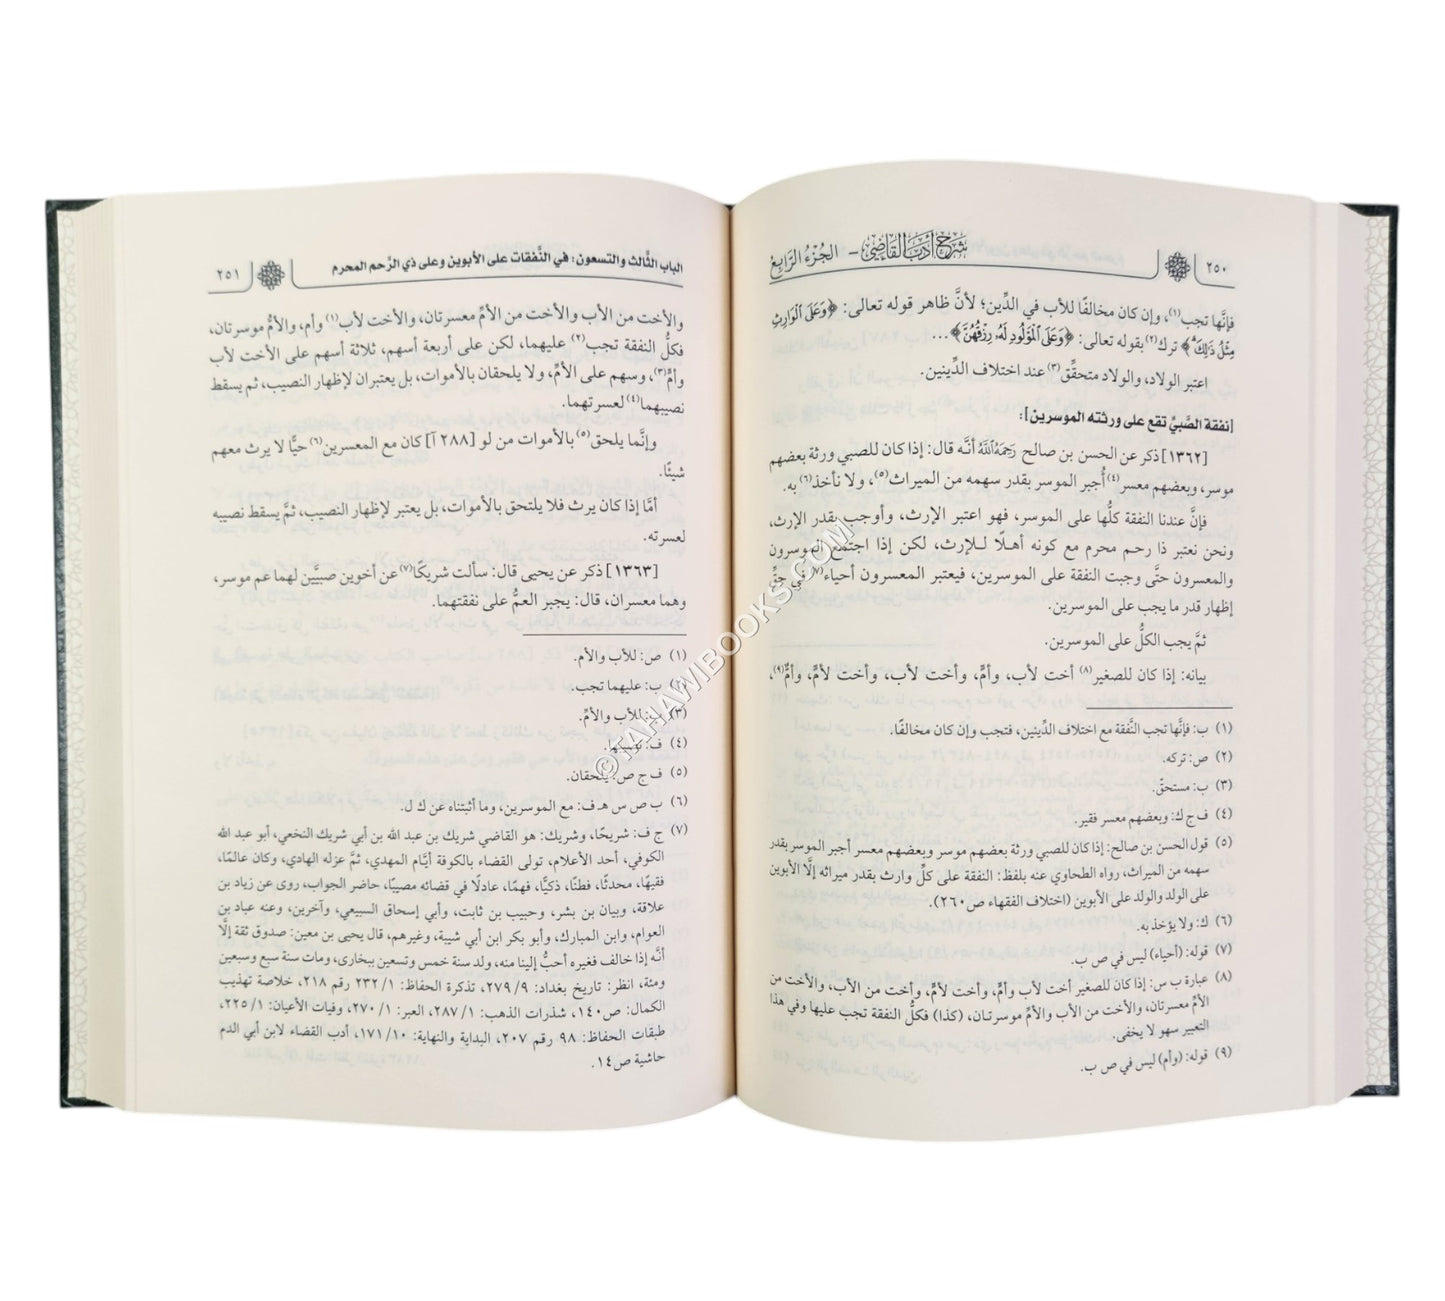 ٢٥٠
شرح أدب القاضي - الجزء الرابع
فإنَّها تجب(١)، وإن كان مخالفًا للأب في الدِّين؛ لأنَّ ظاهر قوله تعالى: ﴿وَعَلَى الْوَارِثِ
مِثْلُ ذَلِكَ﴾ ترك(٢) بقوله تعالى: ﴿وَعَلَى الْمَوْلُودِ لَهُ رِزْقُهُنَّ﴾...
اعتبر الولاد، والولاد متحقِّق(٣) عند اختلاف الدِّينين.
[نفقة الصَّبيِّ تقع على ورثته الموسرين]:
[١٣٦٢] ذكر عن الحسن بن صالح رَحِمَهُ اللَّهُ أنَّه قال: إذا كان للصبي ورثة بعضهم
موسر، وبعضهم معسر(٤) أُجبر الموسر بقدر سهمه من الميراث(٥)، ولا نأخذ(٦) به.
فإنَّ عندنا النفقة كلُّها على الموسر، فهو اعتبر الإرث، وأوجب بقدر الإرث،
ونحن نعتبر ذا رحم محرم مع كونه أهلًا للإرث، لكن إذا اجتمع الموسرون
والمعسرون حتَّى وجبت النفقة على الموسرين، فيعتبر المعسرون أحياء(٧) في حقِّ
إظهار قدر ما يجب على الموسرين.
ثمَّ يجب الكلُّ على الموسرين.
بيانه: إذا كان للصغير(٨) أخت لأب، وأمٍّ، وأخت لأب، وأخت لأمٍّ، وأمٌّ(٩)،
(١) ب: فإنَّها تجب النَّفقة مع اختلاف الدِّينين، فتجب وإن كان مخالفًا.
(٢) ص: تركه.
(٣) ب: مستحقّ.
(٤) ف ج ك: وبعضهم معسر فقير.
(٥) قول الحسن بن صالح: إذا كان للصبي ورثة بعضهم موسر وبعضهم معسر أجبر الموسر بقدر
سهمه من الميراث، رواه الطحاوي عنه بلفظ: النفقة على كلِّ وارث بقدر ميراثه إلَّا الأبوين
على الولد والولد على الأبوين (اختلاف الفقهاء ص٢٦٠).
(٦) ك: ولا يؤخذ به.
(٧) قوله: (أحياء) ليس في ص ب.
(٨) عبارة ب س: إذا كان للصغير أخت لأب وأمٍّ، وأخت لأمٍّ، وأخت من الأب، والأخت من
الأمِّ معسرتان، والأخت من الأب والأمِّ موسرتان، (كذا) فكلُّ النفقة تجب عليها وفي هذا
التعبير سهو لا يخفى.
(٩) قوله: (وأم) ليس في ص ب.
الباب الثَّالث والتسعون: في النَّفقات على الأبوين وعلى ذي الرَّحم المحرم
٢٥١
والأخت من الأب والأخت من الأمِّ معسرتان، والأخت لأب(١) وأم، والأمُّ موسرتان،
فكلُّ النفقة تجب(٢) عليهما، لكن على أربعة أسهم، ثلاثة أسهم على الأخت لأب
وأمٍّ(٣)، وسهم على الأمِّ، ولا يلحقان بالأموات، بل يعتبران لإظهار النصيب، ثم يسقط
نصيبهما(٤) لعسرتهما.
وإنَّما يلحق(٥) بالأموات من لو [٢٨٨ آ] كان مع المعسرين(٦) حيًّا لا يرث معهم
شيئًا.
أمَّا إذا كان يرث فلا يلتحق بالأموات، بل يعتبر لإظهار النصيب، ثمَّ يسقط نصيبه
لعسرته.
[١٣٦٣] ذكر عن يحيى قال: سألت شريكًا(٧) عن أخوين صبيَّين لهما عم موسر،
وهما معسران، قال: يجبر العمُّ على نفقتهما.
(١) ص: للأب والأم.
(٢) ب: عليهما تجب.
(٣) للأب والأمِّ.
(٤) ف: نصيبها.
(٥) ف ج ص: يلحقان.
(٦) ب ص س هـ ف: مع الموسرين، وما أثبتناه عن ك ل.
(٧) ج ف: شريحًا، وشريك: هو القاضي شريك بن عبد الله بن أبي شريك النخعي، أبو عبد الله
الكوفي، أحد الأعلام، تولى القضاء بالكوفة أيَّام المهدي، ثمَّ عزله الهادي، وكان عالمًا،
فقيهًا، محدثًا، فطنًا، ذكيًّا، فهمًا، عادلًا في قضائه مصيبًا، حاضر الجواب، روى عن زياد بن
علاقة، وبيان بن بشر، وحبيب بن ثابت، وأبي إسحاق السبيعي، وآخرين، وعنه عباد بن
العوام، وابن المبارك، وأبو بكر ابن أبي شيبة، وغيرهم، قال يحيى بن معين: صدوق ثقة إلَّا
أنَّه إذا خالف فغيره أحبُّ إلينا منه، ولد سنة خمس وتسعين ببخارى، ومات سنة سبع وسبعين
ومئة، انظر: تاريخ بغداد: ٩/ ٢٧٩، تذكرة الحفاظ: ١/ ٢٣٢ رقم ٢١٨، خلاصة تهذيب
الكمال: ص١٤٠، شذرات الذهب: ١/ ٢٨٧، العبر: ١/ ٢٧٠، وفيات الأعيان: ١/ ٢٢٥،
طبقات الحفاظ: ٩٨ رقم ٢٠٧، البداية والنهاية: ١٠/ ١٧١، أدب القضاء لابن أبي الدم
حاشية ص١٤.
©TAHAWIBOOKS.COM